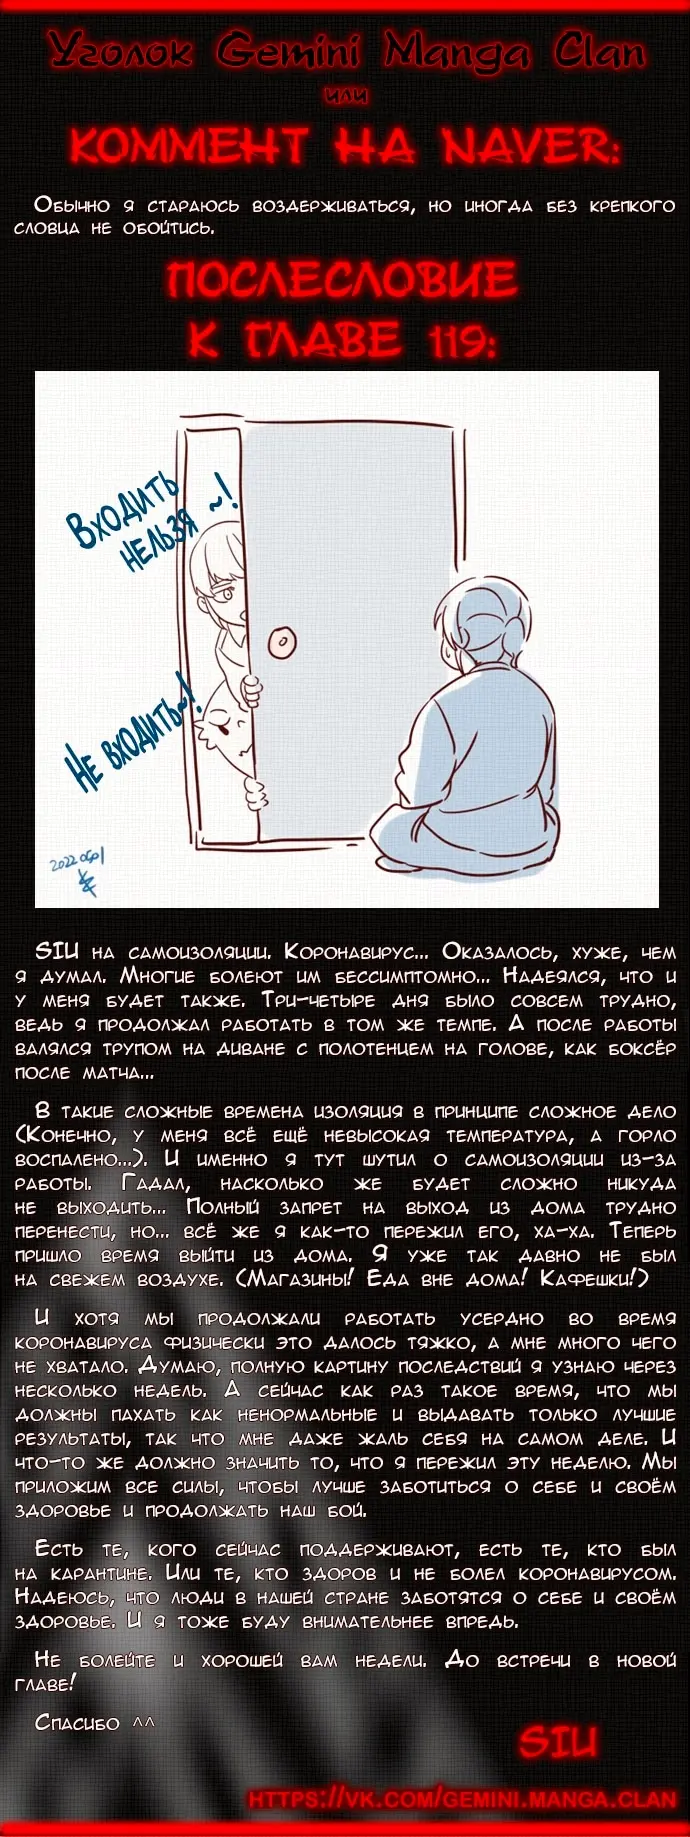 Уголок Gemini Manga Clan
или
КОММЕНТ НА NAVER:
Обычно я стараюсь воздерживаться, но иногда без крепкого
словца не обойтись.
ПОСЛЕСЛОВИЕ
К ГЛАВЕ 119:
Входить
нельзя ~!
Не входить~!
20220501
SIU на самоизоляции. Коронавирус... Оказалось, хуже, чем
я думал. Многие болеют им бессимптомно... Надеялся, что и
у меня будет также. Три-четыре дня было совсем трудно,
ведь я продолжал работать в том же темпе. А после работы
валялся трупом на диване с полотенцем на голове, как боксёр
после матча...
В такие сложные времена изоляция в принципе сложное дело
(Конечно, у меня всё ещё невысокая температура, а горло
воспалено...). И именно я тут шутил о самоизоляции из-за
работы. Гадал, насколько же будет сложно никуда
не выходить... Полный запрет на выход из дома трудно
перенести, но... всё же я как-то пережил его, ха-ха. Теперь
пришло время выйти из дома. Я уже так давно не был
на свежем воздухе. (Магазины! Еда вне дома! Кафешки!)
И хотя мы продолжали работать усердно во время
коронавируса физически это далось тяжко, а мне много чего
не хватало. Думаю, полную картину последствий я узнаю через
несколько недель. А сейчас как раз такое время, что мы
должны пахать как ненормальные и выдавать только лучшие
результаты, так что мне даже жаль себя на самом деле. И
что-то же должно значить то, что я пережил эту неделю. Мы
приложим все силы, чтобы лучше заботиться о себе и своём
здоровье и продолжать наш бой.
Есть те, кого сейчас поддерживают, есть те, кто был
на карантине. Или те, кто здоров и не болел коронавирусом.
Надеюсь, что люди в нашей стране заботятся о себе и своём
здоровье. И я тоже буду внимательнее впредь.
Не болейте и хорошей вам недели. До встречи в новой
главе!
Спасибо ^^
SIU
HTTPS://VK.COM/GEMINI.MANGA.CLAN